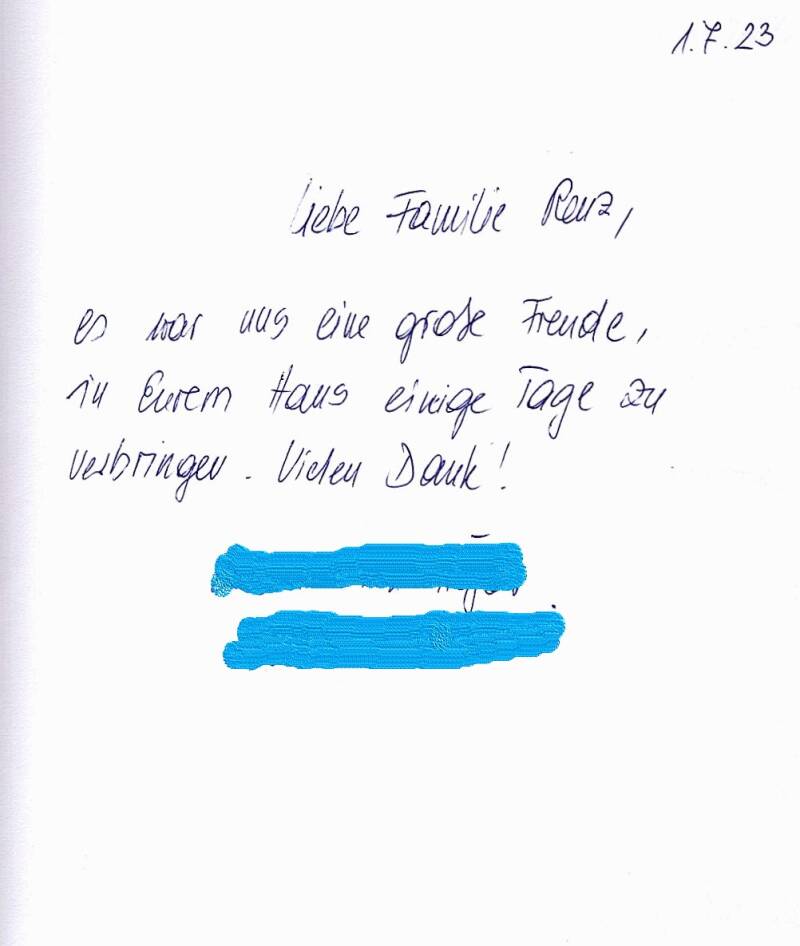 1.7.23
Liebe Familie Renz,
es war uns eine große Freude,
in Eurem Haus einige Tage zu
verbringen. Vielen Dank!